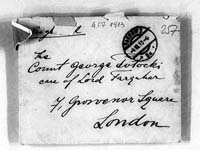 4157 1913
257
The
Count George Potocki
care of Lord Farquhar
7, Grosvenor Square
London